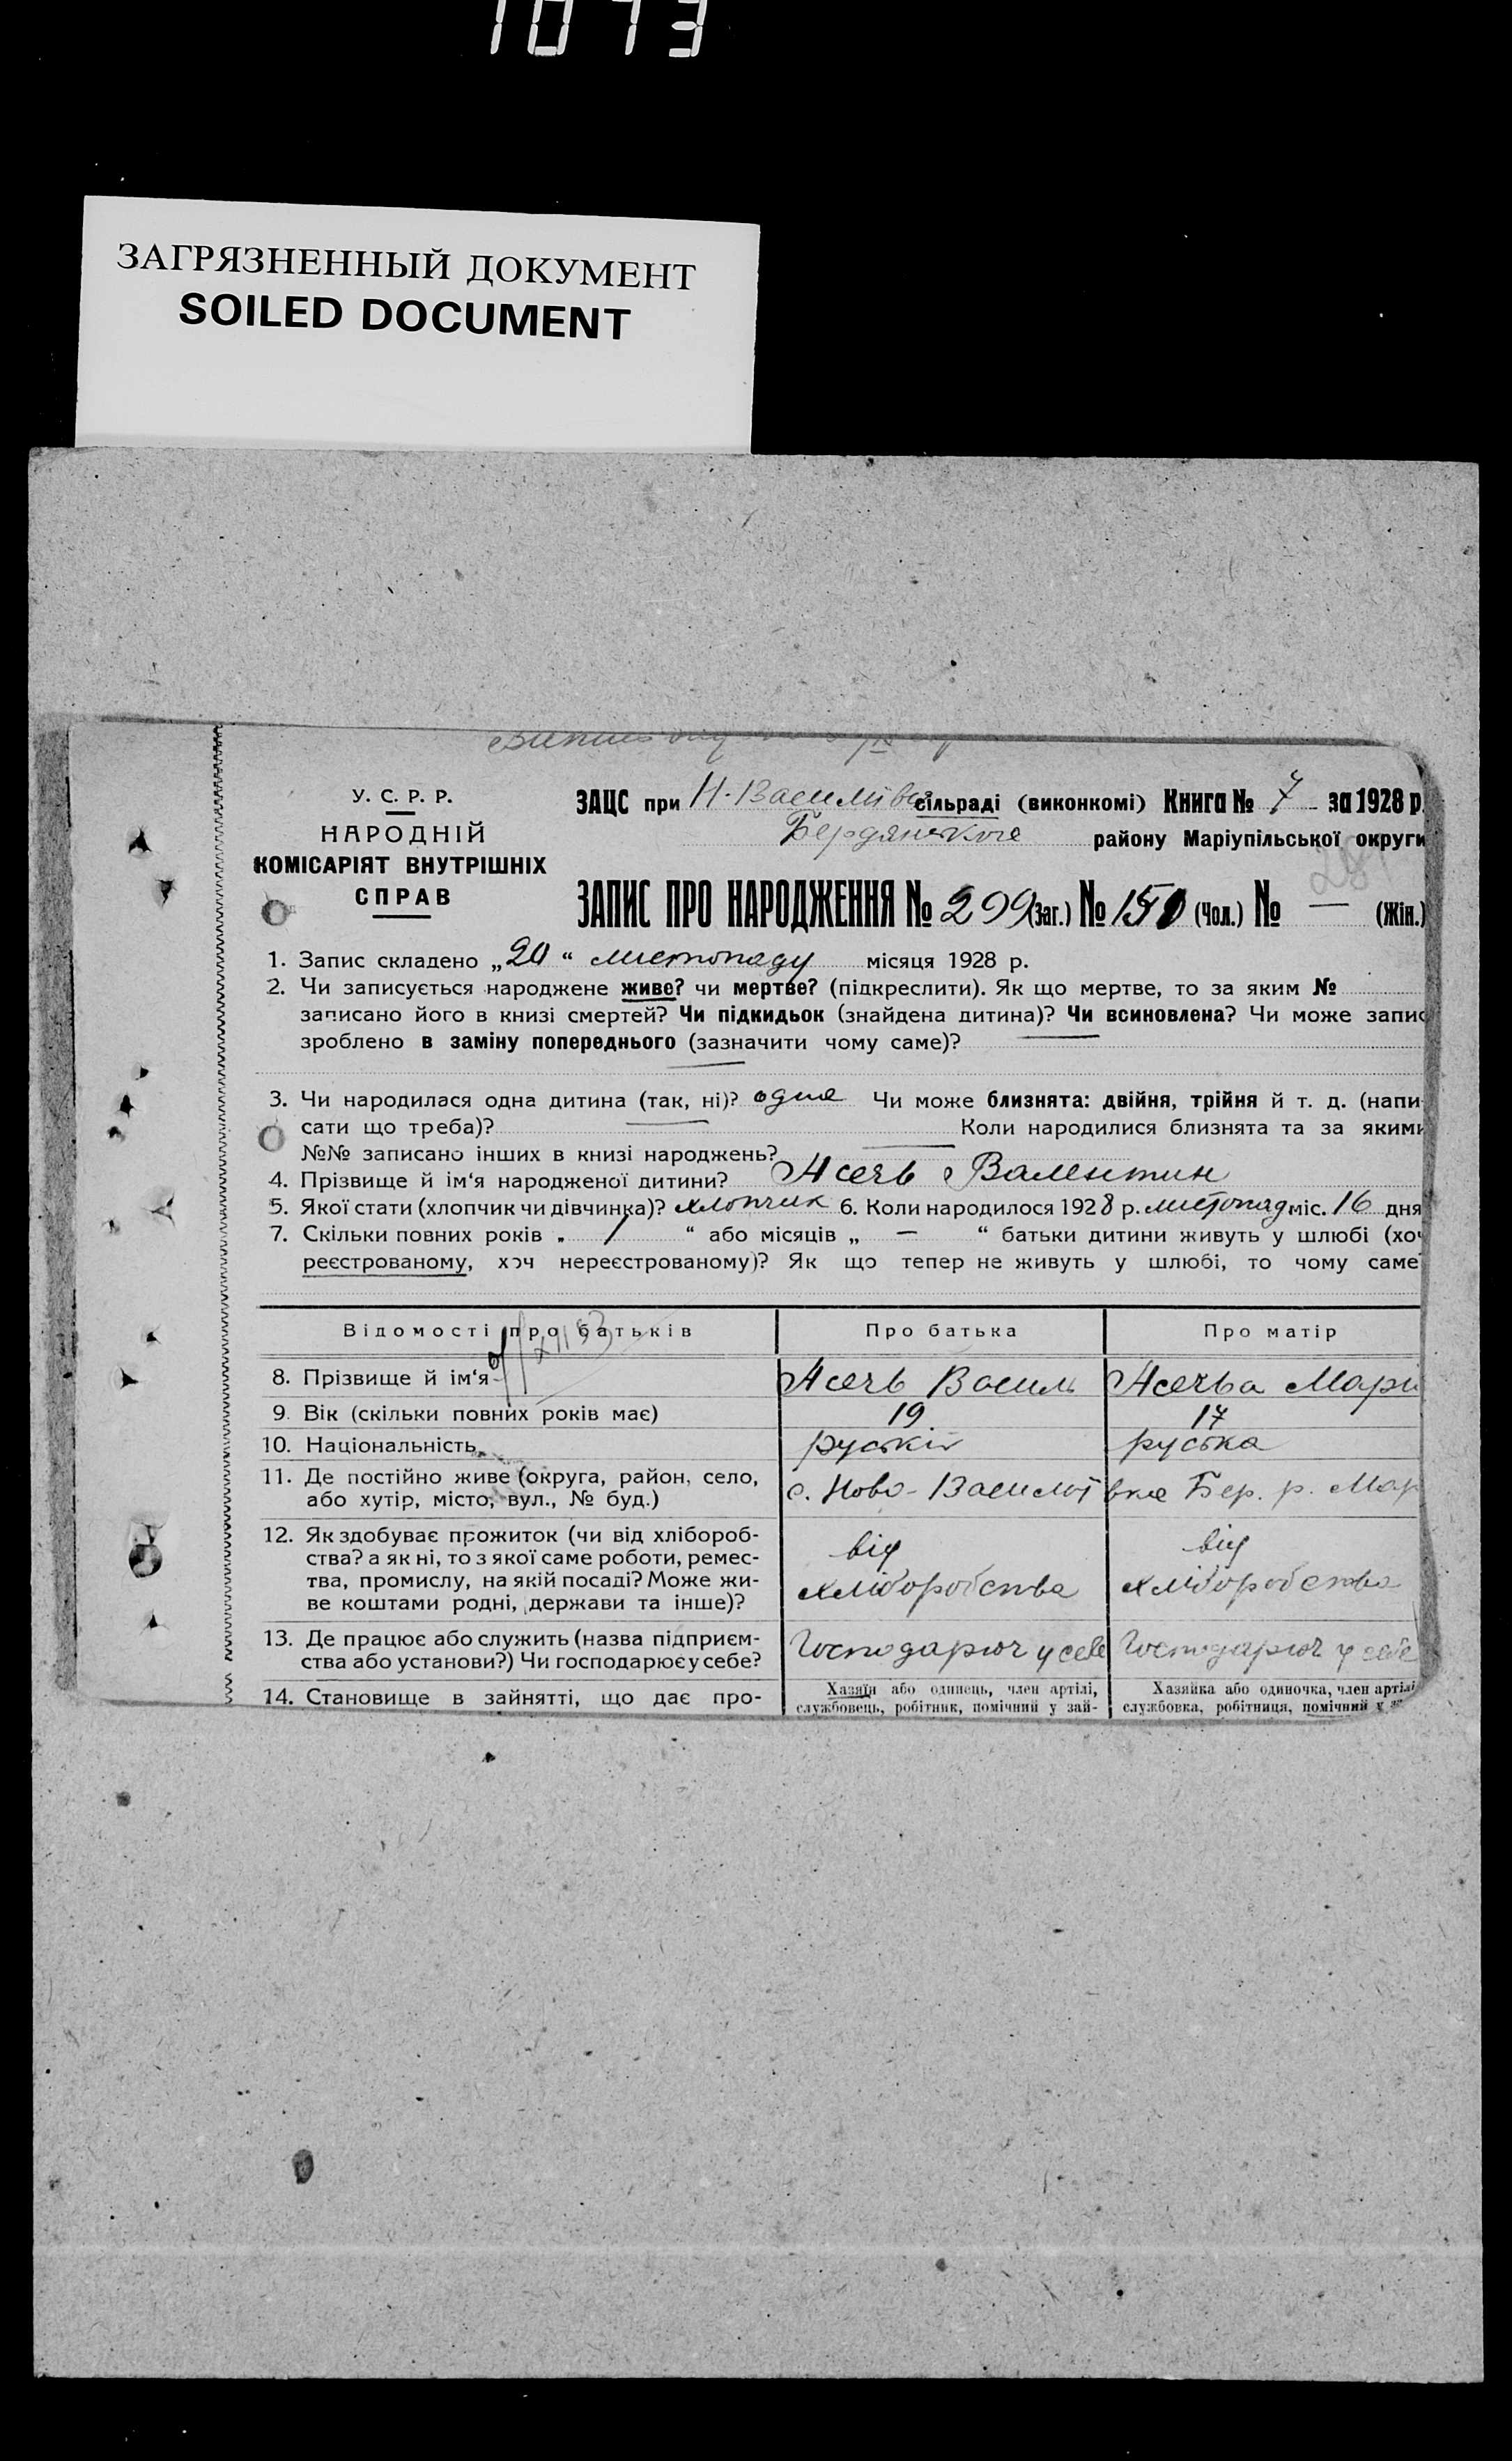 1073
ЗАГРЯЗНЕННЫЙ ДОКУМЕНТ
SOILED DOCUMENT
У. С. Р. Р.
НАРОДНІЙ
КОМІСАРІЯТ ВНУТРІШНІХ
СПРАВ
ЗАЦС при Н-Василівка сільраді (виконкомі) Книга № 7 за 1928 р.
Бердянського району Маріупільської округи
ЗАПИС ПРО НАРОДЖЕННЯ № 299 (заг.) № 150 (чол.) № — (жін.)
1. Запис складено „20“ листопаду місяця 1928 р.
2. Чи записується народжене живе? чи мертве? (підкреслити). Як що мертве, то за яким №
записано його в книзі смертей? Чи підкидьок (знайдена дитина)? Чи всиновлена? Чи може запис
зроблено в заміну попереднього (зазначити чому саме)? —
3. Чи народилася одна дитина (так, ні)? одна Чи може близнята: двійня, трійня й т. д. (напи-
сати що треба)? — Коли народилися близнята та за якими
№№ записано інших в книзі народжень? —
4. Прізвище й ім‘я народженої дитини? Асечь Валентин
5. Якої стати (хлопчик чи дівчинка)? хлопчик 6. Коли народилося 1928 р. листопад міс. 16 дня
7. Скільки повних років „ 1 “ або місяців „ — “ батьки дитини живуть у шлюбі (хоч
реєстрованому, хоч нереєстрованому)? Як що тепер не живуть у шлюбі, то чому саме
Відомості про батьків Про батька Про матір
8. Прізвище й ім‘я Асечь Василь Асечьа Марі
9. Вік (скільки повних років має) 19 17
10. Національність руській руська
11. Де постійно живе (округа, район, село,
або хутір, місто, вул., № буд.) с. Ново-Василівка Бер. р. Мар
12. Як здобуває прожиток (чи від хлібороб-
ства? а як ні, то з якої саме роботи, ремес- від від
тва, промислу, на якій посаді? Може жи- хліборобства хліборобства
ве коштами родні, держави та інше)?
13. Де працює або служить (назва підприєм- Господарюч у себе Господарюч у себе
ства або установи?) Чи господарює у себе?
14. Становище в зайнятті, що дає про- Хазяїн або одинець, член артілі, Хазяйка або одиночка, член артілі
службовець, робітник, помічний у зай- службовка, робітниця, помічний у